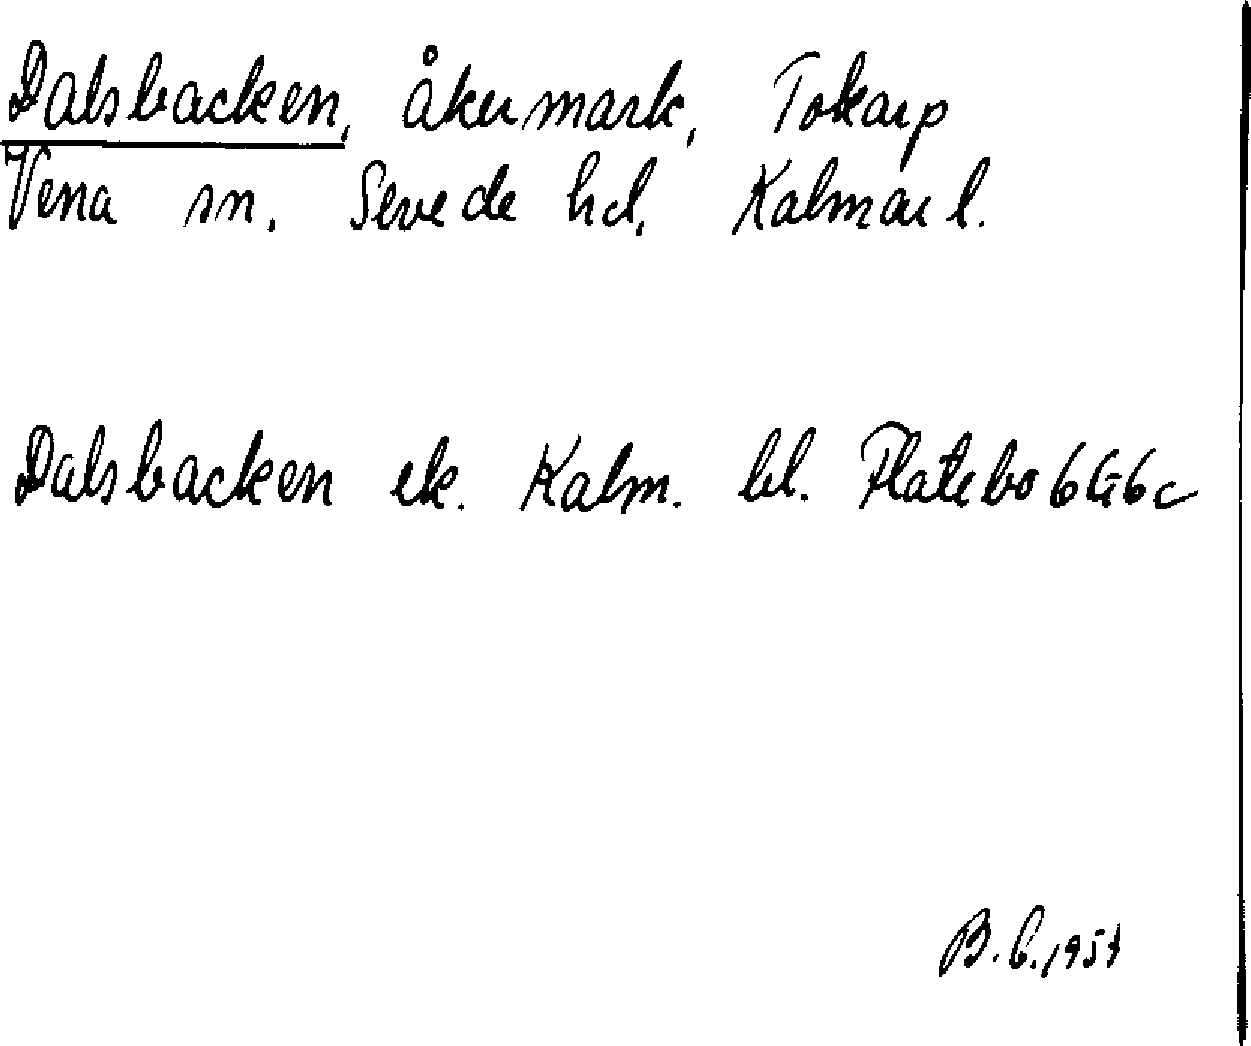 Dalsbacken, åkermark, Tokarp
Vena sn. Sevede hd. Kalmar l.
Dalsbacken ek. Kalm. bl. Flatebo 6G6c